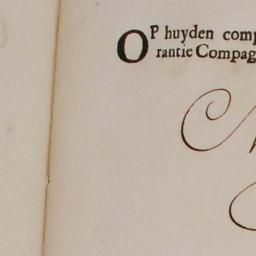 OP huyden comp
rantie Compag